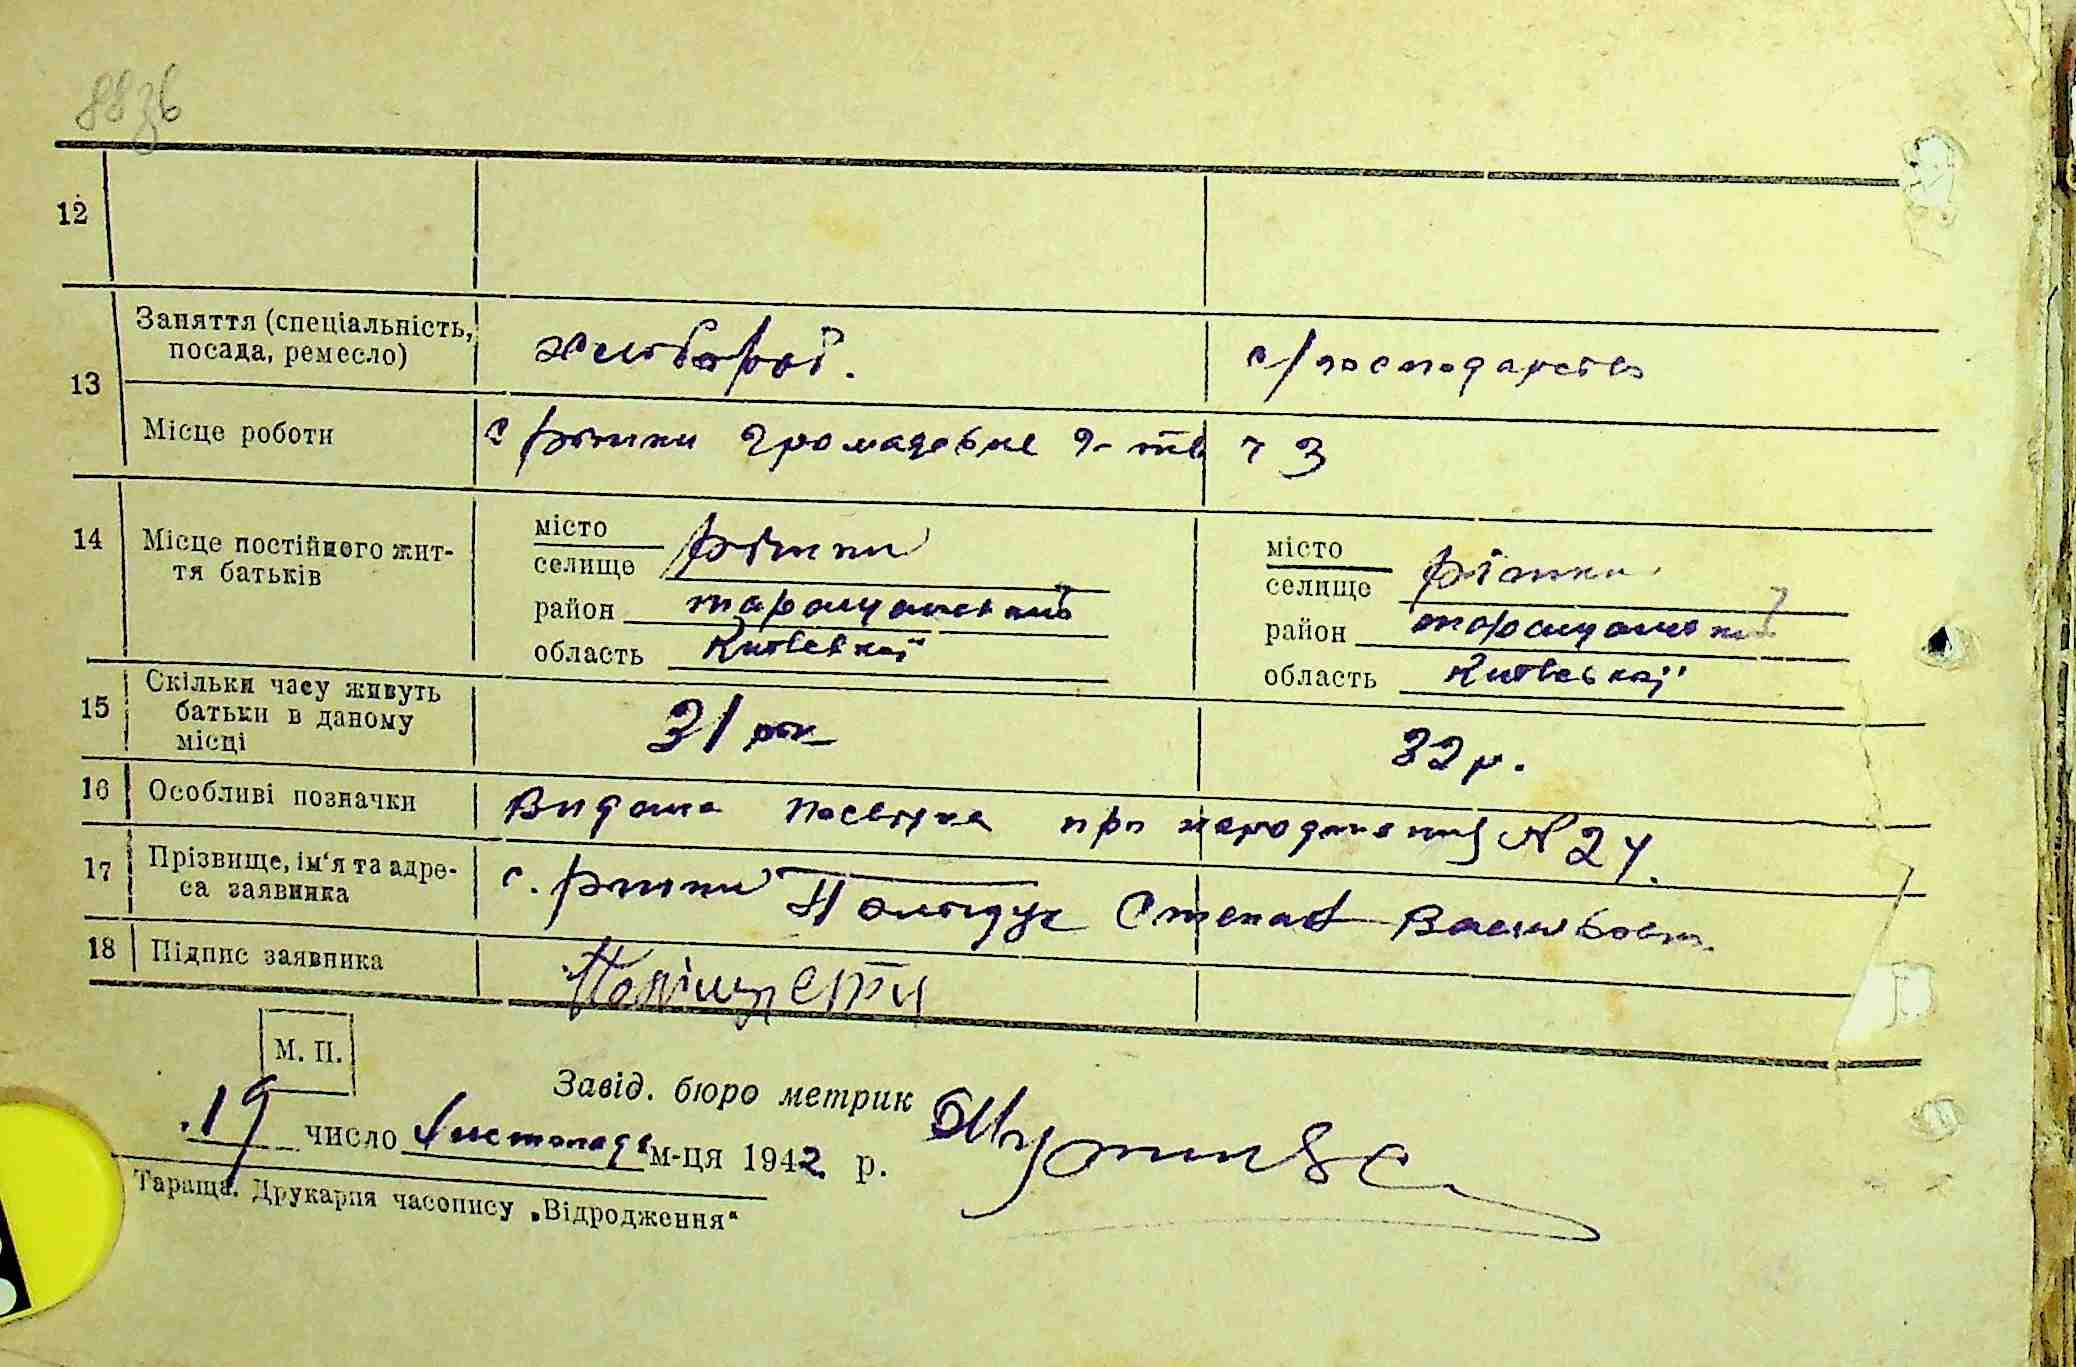 88зв
12
13
Заняття (спеціальність, посада, ремесло)
хлібороб.
с/господарство
Місце роботи
с Ріжки громадське г-тв ч 3
14
Місце постійного жит-
тя батьків
місто
селище Ріжки
район таращанський
область Київської
місто
селище Ріжки
район таращанський
область Київської
15
Скільки часу живуть
батьки в даному
місці
31 рік
32 р.
16
Особливі позначки
Видана посвідка про народження N 24.
17
Прізвище, ім'я та адре-
са заявника
с. Ріжки Поліщук Степан Васильович
18
Підпис заявника
Поліщук
М. П.
Завід. бюро метрик
19 число листопада м-ця 1942 р.
Тараща. Друкарня часопису „Відродження“